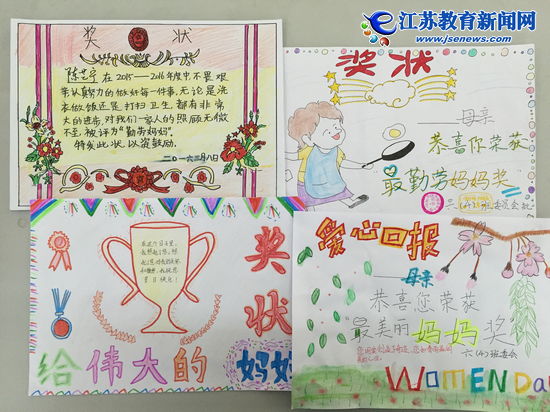 江苏教育新闻网
www.jsenews.com
奖 状
在2015——2016年度中不畏艰
认真努力的做好每一件事，无论是洗
衣做饭还是打扫卫生，都有非常
大的进步，对我们一家人的照顾无微
不至，被评为“勤劳妈妈”。
特发此状，以资鼓励。
二〇一六三月八日
奖状
母亲
恭喜你荣获
最勤劳妈妈奖
奖状
给伟大的妈妈
爱心回报
母亲
恭喜您荣获
“最美丽妈妈奖”
六（4）班委会
WOMEN Day